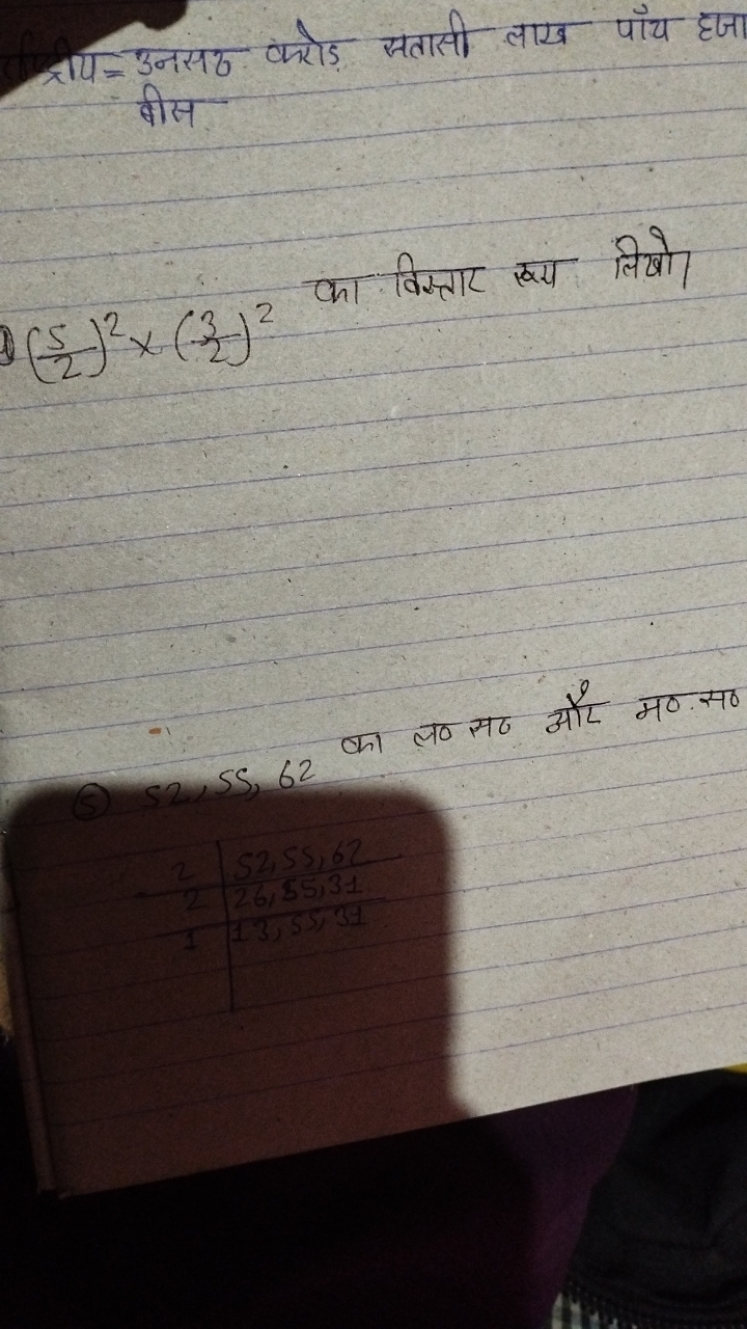 = उनसठ करोड़ सतासी लाख पाँच
बीस
(5/2)² × (3/2)² का विस्तार रूप लिखो।
⑤ 52, 55, 62 का ल० स० और म० स०
2 | 52, 55, 62
2 | 26, 55, 31
1 | 13, 55, 31